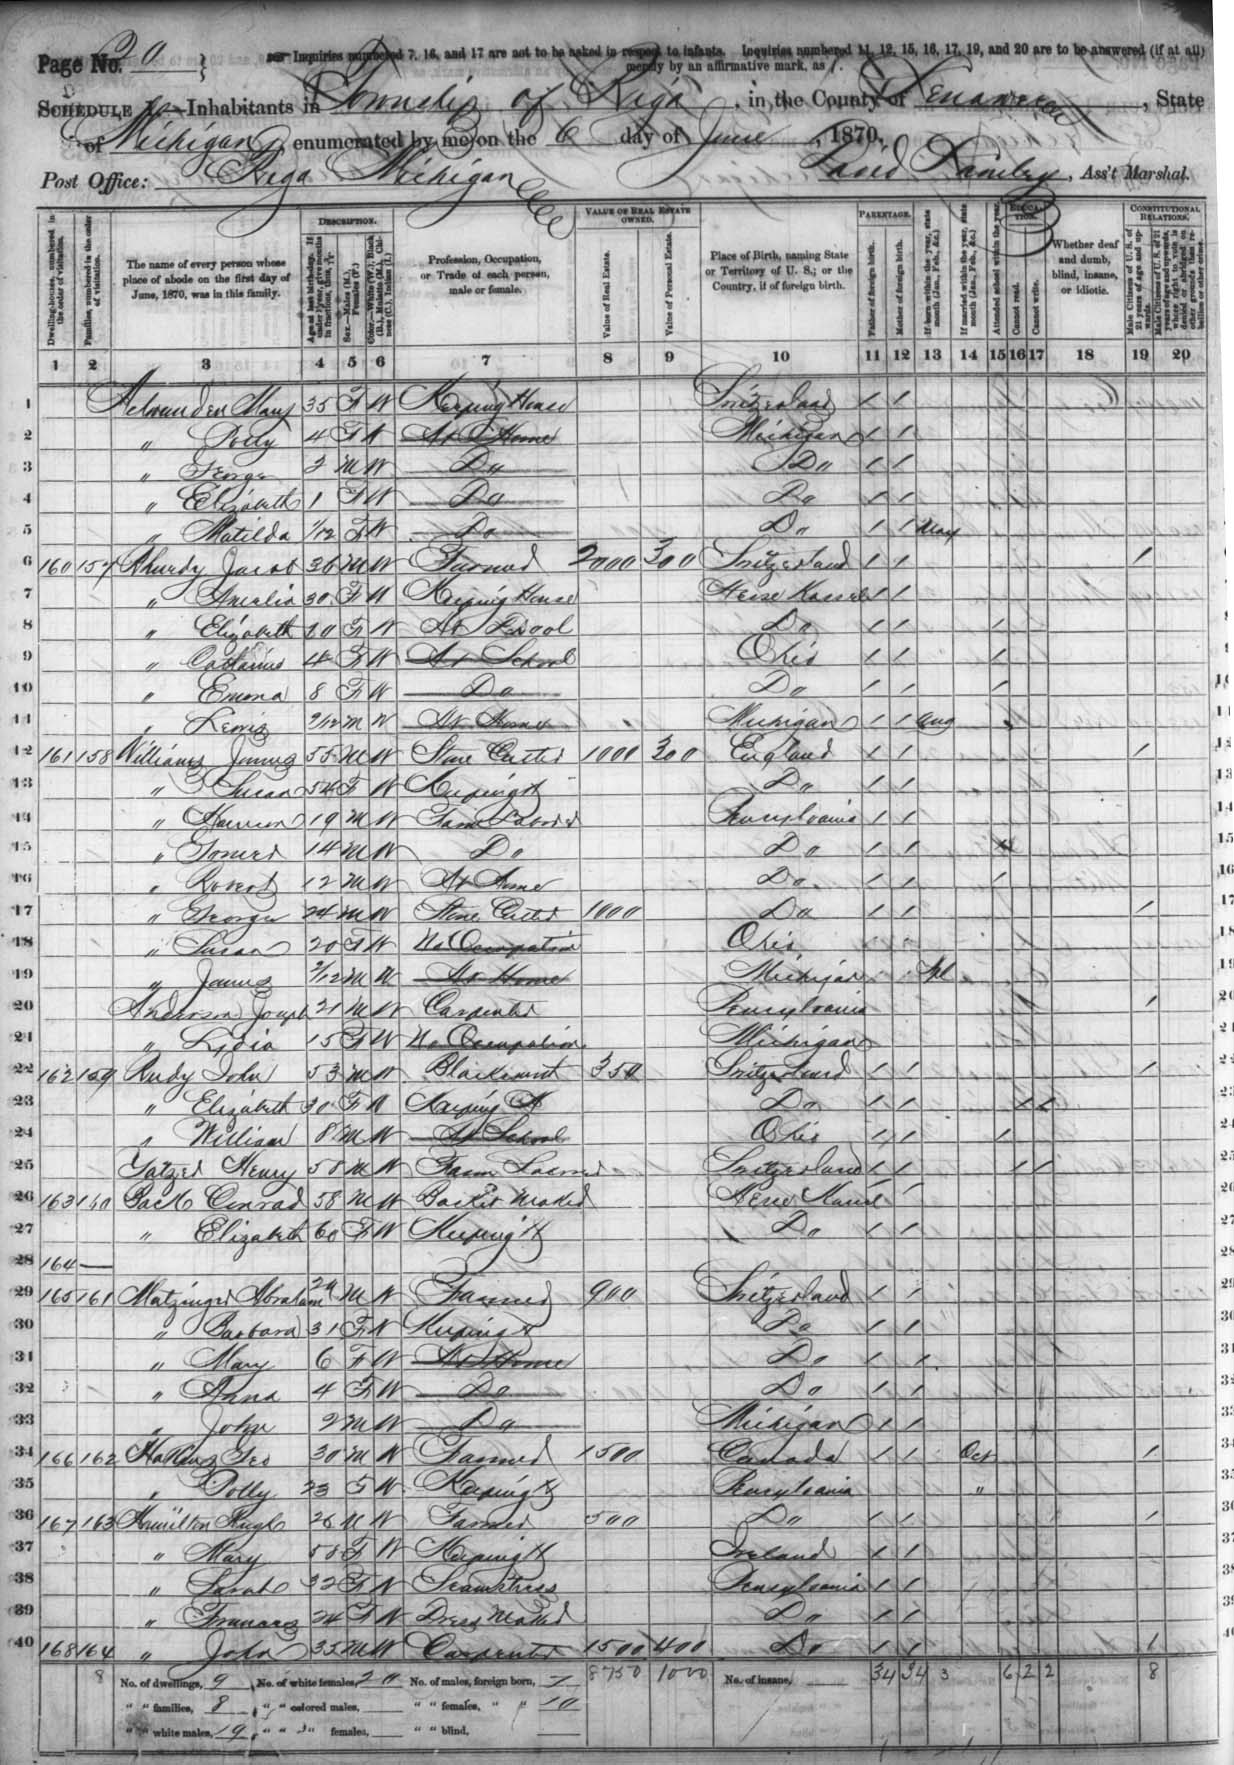 Page No. 20
Inquiries numbered 7, 16, and 17 are not to be asked in respect to infants. Inquiries numbered 11, 12, 15, 16, 17, 19, and 20 are to be answered (if at all)
merely by an affirmative mark, as /.
SCHEDULE 1.—Inhabitants in Township of Riga, in the County of Lenawee, State
of Michigan, enumerated by me on the 6 day of June, 1870.
Post Office: Riga Michigan David, Ass't Marshal.
Dwelling-houses, numbered in the order of visitation.
Families, numbered in the order of visitation.
The name of every person whose place of abode on the first day of June, 1870, was in this family.
DESCRIPTION.
Age at last birthday. If under 1 year, give months in fractions, thus, 3/12.
Sex.—Males (M.), Females (F.)
Color.—White (W.), Black (B.), Mulatto (M.), Chinese (C.), Indian (I.)
Profession, Occupation, or Trade of each person, male or female.
VALUE OF REAL ESTATE OWNED.
Value of Real Estate.
Value of Personal Estate.
Place of Birth, naming State or Territory of U. S.; or the Country, if of foreign birth.
PARENTAGE.
Father of foreign birth.
Mother of foreign birth.
If born within the year, state month (Jan., Feb., &c.)
If married within the year, state month (Jan., Feb., &c.)
Attended school within the year.
EDUCATION.
Cannot read.
Cannot write.
Whether deaf and dumb, blind, insane, or idiotic.
CONSTITUTIONAL RELATIONS.
Male Citizens of U. S. of 21 years of age and upwards.
Male Citizens of U. S. of 21 years of age and upwards, whose right to vote is denied or abridged on other grounds than rebellion or other crime.
1 2 3 4 5 6 7 8 9 10 11 12 13 14 15 16 17 18 19 20
1 Mary 35 F W Keeping House Switzerland / /
2 " Polly 4 F W At Home Michigan / /
3 " George 2 M W Do Do / /
4 " Elizabeth 1 F W Do Do / /
5 " Matilda 1/12 F W Do Do / / May
6 160 157 Jacob 36 M W Farmer 2000 300 Switzerland / / /
7 " Amelia 30 F W Keeping House Hesse Kassel / /
8 " Elizabeth 10 F W At School Do / / /
9 " Catharine F W At School Ohio / / /
10 " Emma 8 F W Do Do / / /
11 " Lewis 9/12 M W At Home Michigan / / Aug
12 161 158 Williams James 55 M W Stone Cutter 1000 300 England / / /
13 " Susan 54 F W Keeping H Do / /
14 " Harrison 19 M W Farm Laborer Pennsylvania / /
15 " 14 M W Do Do / /
16 " Robert 12 M W At Home Do / / /
17 " George 24 M W Stone Cutter 1000 Do / / /
18 " Susan 20 F W No Occupation Ohio
19 " James 2/12 M W At Home Michigan
20 Anderson Joseph 21 M W Carpenter Pennsylvania /
21 " Lydia 15 F W No Occupation Michigan
22 162 159 Rudy John 53 M W Blacksmith 350 Switzerland / / /
23 " Elizabeth 30 F W Keeping H Do / / / /
24 " William 8 M W At School Ohio / / /
25 Henry 58 M W Farm Laborer Switzerland / / / /
26 163 160 Back Conrad 58 M W Basket Maker Hesse Kassel / /
27 " Elizabeth 60 F W Keeping H Do / /
28 164 —
29 165 161 Matzinger Abraham 29 M W Farmer 900 Switzerland / /
30 " Barbara 31 F W Keeping H Do / /
31 " Mary 6 F W At Home Do / /
32 " Anna 4 F W Do Do / /
33 " John 2 M W Do Michigan / /
34 166 162 Geo 30 M W Farmer 1500 Canada / / Oct /
35 " Polly 23 F W Keeping H Pennsylvania "
36 167 163 Hamilton Hugh 26 M W Farmer 500 Do / / /
37 " Mary 58 F W Keeping H Ireland / /
38 " Sarah 32 F W Seamstress Pennsylvania / /
39 " Frances 24 F W Dress Maker Do / /
40 168 164 " John 35 M W Carpenter 1500 400 Do / / /
8 No. of dwellings, 9 No. of white females, 20 No. of males, foreign born, 7 8750 1000 No. of insane, 34 34 3 6 2 2 8
" " families, 8 " " colored males, " " females, " " 10
" " white males, 19 " " " females, " " blind,